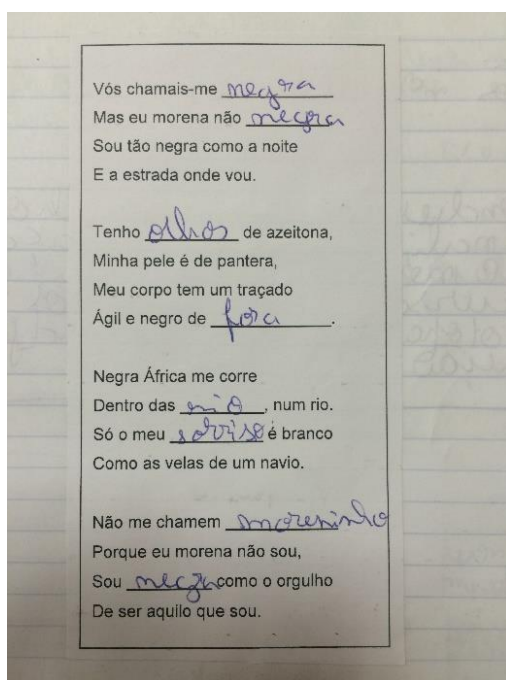 Vós chamais-me negra
Mas eu morena não negra
Sou tão negra como a noite
E a estrada onde vou.
Tenho olhos de azeitona,
Minha pele é de pantera,
Meu corpo tem um traçado
Ágil e negro de fora.
Negra África me corre
Dentro das mio, num rio.
Só o meu sorriso é branco
Como as velas de um navio.
Não me chamem moreninho
Porque eu morena não sou,
Sou negra como o orgulho
De ser aquilo que sou.